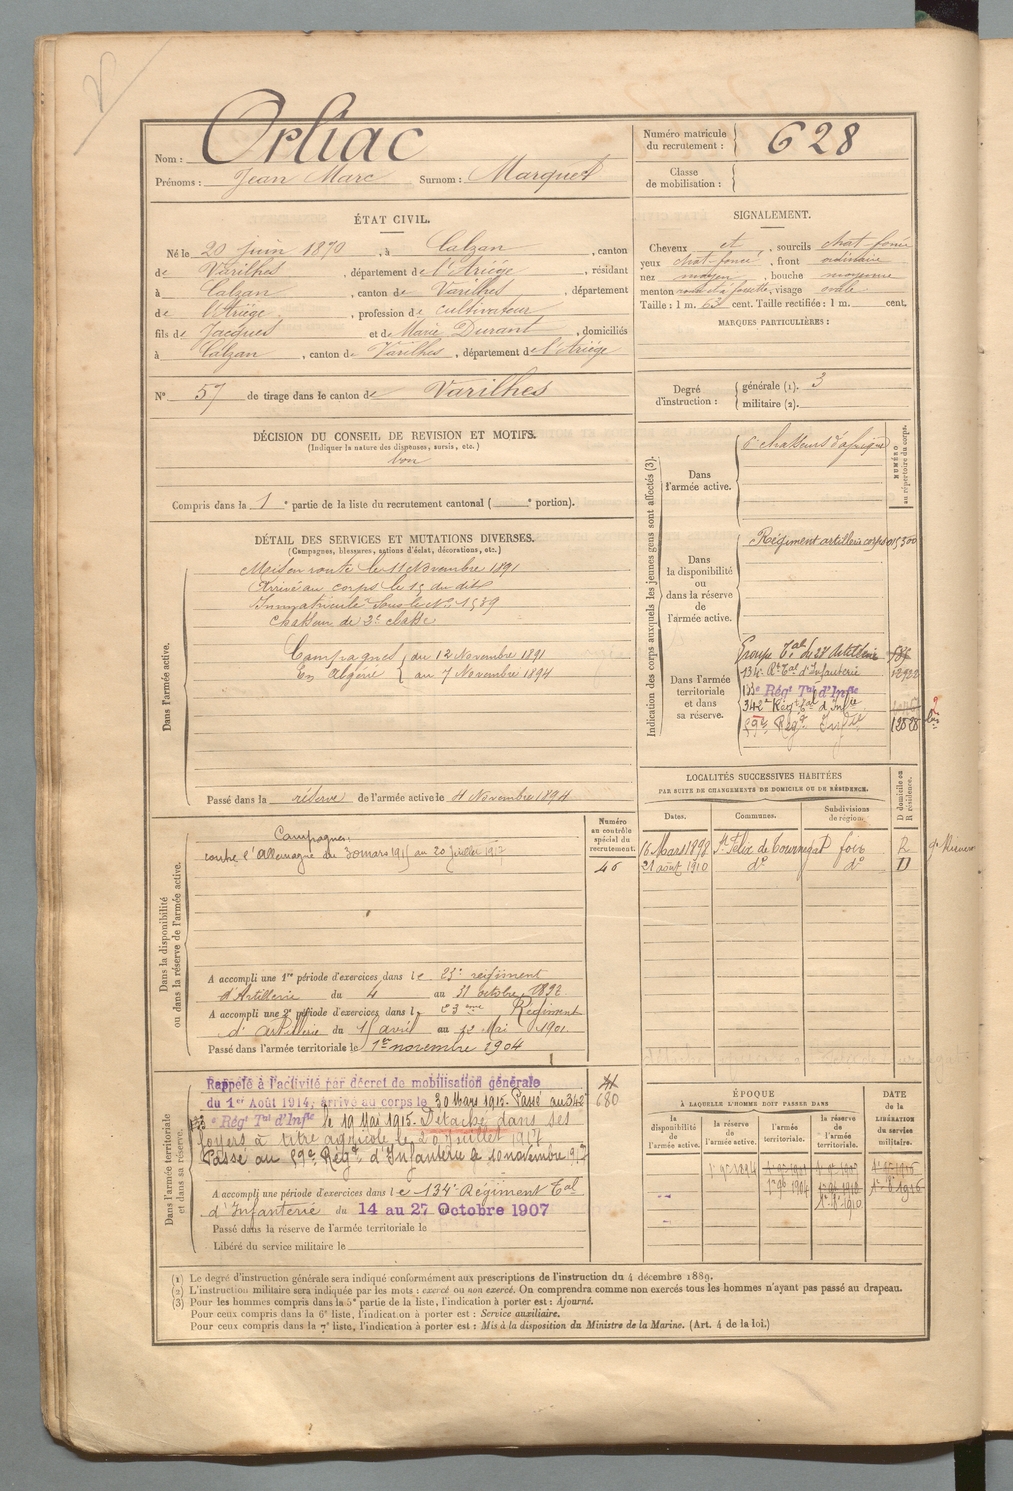 Nom : Orliac
Prénoms : Jean Marc Surnom : Marquet
Numéro matricule du recrutement : 628
Classe de mobilisation :
ÉTAT CIVIL.
Né le 20 juin 1870, à Calzan, canton
de Varilhes, département de l'Ariége, résidant
à Calzan, canton de Varilhes, département
de l'Ariége, profession de cultivateur
fils de Jacques et de Marie Durant, domiciliés
à Calzan, canton de Varilhes, département de l'Ariége
N° 57 de tirage dans le canton de Varilhes
SIGNALEMENT.
Cheveux et, sourcils chat-foncé
yeux chat-foncé, front ordinaire
nez moyen, bouche moyenne
menton rond et à fossette, visage ovale
Taille : 1 m. 63 cent. Taille rectifiée : 1 m. cent.
MARQUES PARTICULIÈRES :
Degré d'instruction : générale (1). 3
militaire (2).
DÉCISION DU CONSEIL DE REVISION ET MOTIFS.
(Indiquer la nature des dispenses, sursis, etc.)
bon
Compris dans la 1e partie de la liste du recrutement cantonal ( e portion).
DÉTAIL DES SERVICES ET MUTATIONS DIVERSES.
(Campagnes, blessures, actions d'éclat, décorations, etc.)
Dans l'armée active.
Mis en route le 11 Novembre 1891
Arrivé au corps le 15 du dit
Immatriculé sous le N° 1589
Chasseur de 2e classe
Campagnes du 12 Novembre 1891
En Algérie au 7 Novembre 1894
Passé dans la réserve de l'armée active le 4 Novembre 1894
Indication des corps auxquels les jeunes gens sont affectés (3).
NUMÉRO au répertoire du corps.
Dans l'armée active.
6e chasseurs d'afrique
Dans la disponibilité ou dans la réserve de l'armée active.
Régiment artillerie corps
Dans l'armée territoriale et dans sa réserve.
Groupe Tal de 23e Artillerie
134e Rt Tal d'Infanterie 12922
133e Régt Tal d'Infie
342e Régt Tal d'Infie
89e Régt Infie 12828 bis
Dans la disponibilité ou dans la réserve de l'armée active.
Numéro au contrôle spécial du recrutement.
46
Campagnes
contre l'Allemagne du 30 mars 1915 au 20 Juillet 1917
A accompli une 1re période d'exercices dans le 23e regiment
d'Artillerie du 4 au 31 octobre 1892
A accompli une 2e période d'exercices dans le 23eme Regiment
d'artillerie du 15 avril au 12 Mai 1901
Passé dans l'armée territoriale le 1er novembre 1904
LOCALITÉS SUCCESSIVES HABITÉES
PAR SUITE DE CHANGEMENTS DE DOMICILE OU DE RÉSIDENCE.
Dates. Communes. Subdivisions de région. D domicile ou R résidence.
16 Mars 1898 St Félix de Tournegat foix R
21 août 1910 do do D
Dans l'armée territoriale et dans sa réserve.
Rappelé à l'activité par décret de mobilisation générale
du 1er Août 1914, arrivé au corps le 30 Mars 1915. Passé au 342 680
e Régt Tal d'Infie le 19 Mai 1915. Détaché dans ses
foyers à titre agricole le 20 juillet 1917
Passé au 89e Régt d'Infanterie le 10 novembre 1917
A accompli une période d'exercices dans le 134e Régiment Tal
d'Infanterie du 14 au 27 Octobre 1907
Passé dans la réserve de l'armée territoriale le
Libéré du service militaire le
ÉPOQUE
À LAQUELLE L'HOMME DOIT PASSER DANS
la disponibilité de l'armée active. la réserve de l'armée active. l'armée territoriale. la réserve de l'armée territoriale.
DATE de la LIBÉRATION du service militaire.
1er 9bre 1894
1er 9bre 1904
(1) Le degré d'instruction générale sera indiqué conformément aux prescriptions de l'instruction du 4 décembre 1889.
(2) L'instruction militaire sera indiquée par les mots : exercé ou non exercé. On comprendra comme non exercés tous les hommes n'ayant pas passé au drapeau.
(3) Pour les hommes compris dans la 5e partie de la liste, l'indication à porter est : Ajourné.
Pour ceux compris dans la 6e liste, l'indication à porter est : Service auxiliaire.
Pour ceux compris dans la 7e liste, l'indication à porter est : Mis à la disposition du Ministre de la Marine. (Art. 4 de la loi.)